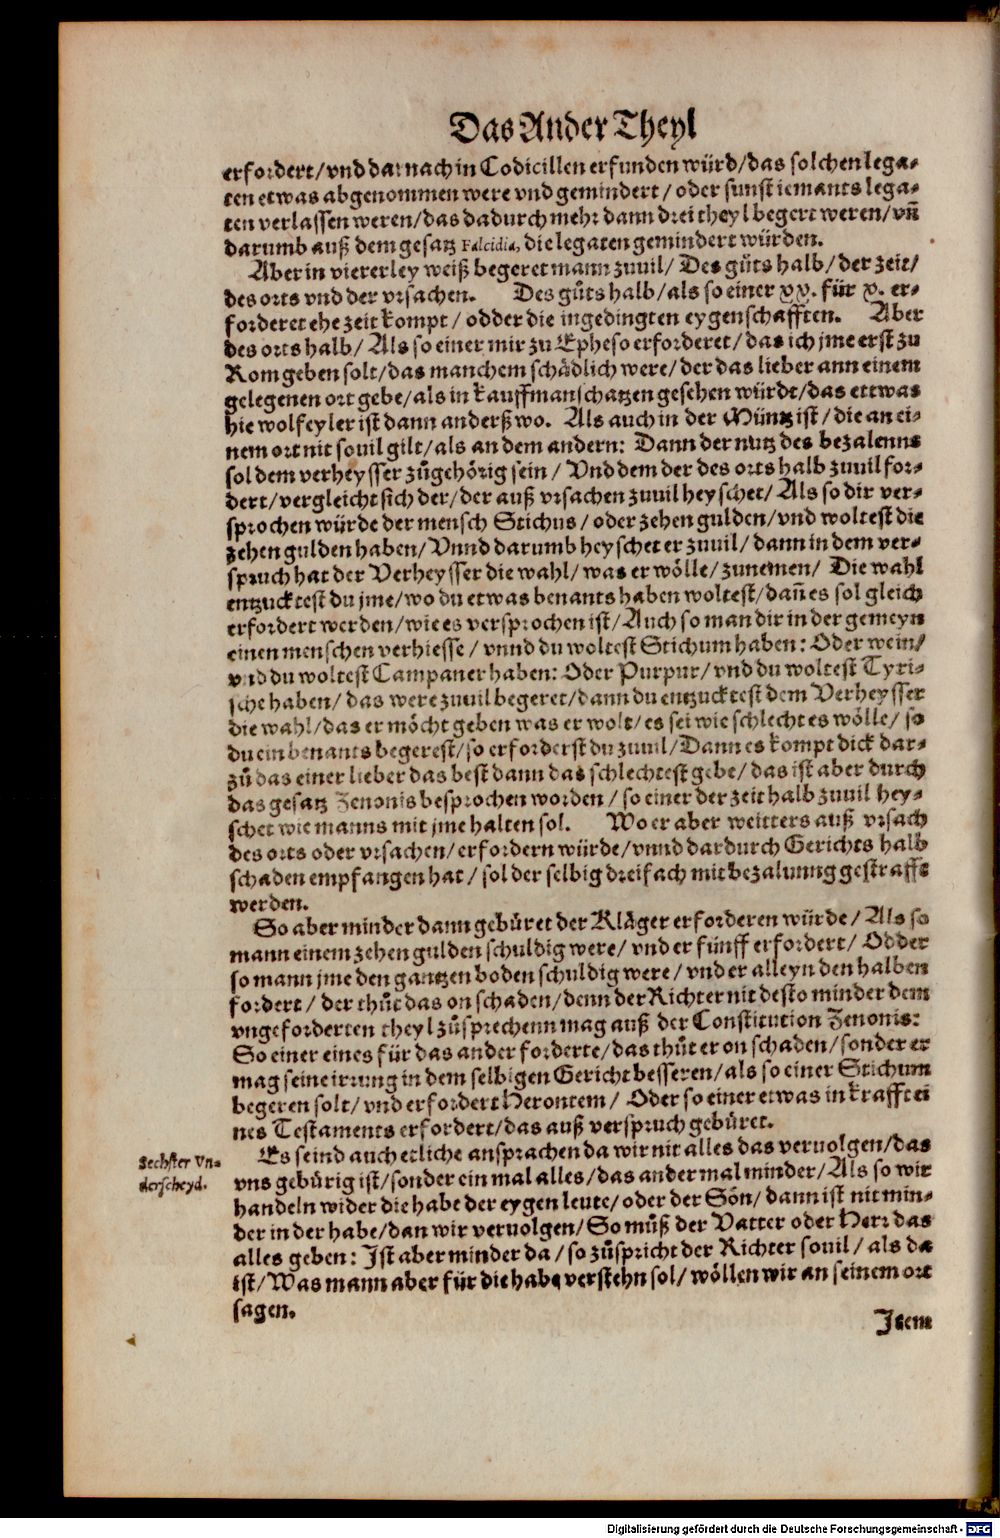 Das Ander Theyl
erfordert/vnd darnach in Codicillen erfunden würd/das solchen lega-
ten etwas abgenommen were vnd gemindert/oder sunst iemants lega-
ten verlassen weren/das dadurch mehr dann drei theyl begert weren/vñ
darumb auß dem gesatz Falcidia, die legaten gemindert würden.
Aber in viererley weiß begeret mann zuuil/Des gůts halb/der zeit/
des orts vnd der vrsachen. Des gůts halb/als so einer xx. für x. er-
forderet ehe zeit kompt/odder die ingedingten eygenschafften. Aber
des orts halb/Als so einer mir zu Epheso erforderet/das ich jme erst zu
Rom geben solt/das manchem schädlich were/der das lieber ann einem
gelegenen ort gebe/als in kauffmanschatzen gesehen würdt/das ettwas
hie wolfeyler ist dann anderßwo. Als auch in der Müntz ist/die an ei-
nem ort nit souil gilt/als an dem andern: Dann der nutz des bezalenns
sol dem verheysser zůgehörig sein/Vnd dem der des orts halb zuuil for-
dert/vergleicht sich der/der auß vrsachen zuuil heyschet/Als so dir ver-
sprochen würde der mensch Stichus/oder zehen gulden/vnd woltest die
zehen gulden haben/Vnnd darumb heyschet er zuuil/dann in dem ver-
spruch hat der Verheysser die wahl/was er wölle/zunemen/Die wahl
entzucktest du jme/wo du etwas benants haben woltest/dañ es sol gleich
erfordert werden/wie es versprochen ist/Auch so man dir in der gemeyn
einen menschen verhiesse/vnnd du woltest Stichum haben: Oder wein/
vnd du woltest Campaner haben: Oder Purpur/vnd du woltest Tyri-
sche haben/das were zuuil begeret/dann du entzucktest dem Verheysser
die wahl/das er möcht geben was er wolt/es sei wie schlecht es wölle/so
du ein benants begerest/so erforderst du zuuil/Dann es kompt dick dar-
zů das einer lieber das best dann das schlechtest gebe/das ist aber durch
das gesatz Zenonis besprochen worden/so einer der zeit halb zuuil hey-
schet wie manns mit jme halten sol. Wo er aber weitters auß vrsach
des orts oder vrsachen/erfordern würde/vnnd dardurch Gerichts halb
schaden empfangen hat/sol der selbig dreifach mit bezalunng gestrafft
werden.
So aber minder dann gebüret der Kläger erforderen würde/Als so
mann einem zehen gulden schuldig were/vnd er fünff erfordert/Odder
so mann jme den gantzen boden schuldig were/vnd er alleyn den halben
fordert/der thůt das on schaden/denn der Richter nit desto minder dem
vngeforderten theyl zůsprechenn mag auß der Constitution Zenonis:
So einer eines für das ander forderte/das thůt er on schaden/sonder er
mag seine irrung in dem selbigen Gericht besseren/als so einer Stichum
begeren solt/vnd erfordert Herontem/Oder so einer etwas in krafft ei
nes Testaments erfordert/das auß verspruch gebüret.
Sechster Vn-
derscheyd.
Es seind auch etliche ansprachen da wir nit alles das veruolgen/das
vns gebürig ist/sonder ein mal alles/das ander mal minder/Als so wir
handeln wider die habe der eygen leute/oder der Sön/dann ist nit min-
der in der habe/dan wir veruolgen/So můß der Vatter oder Herr das
alles geben: Ist aber minder da/so zůspricht der Richter souil/als da
ist/Was mann aber für die habe verstehn sol/wöllen wir an seinem ort
sagen.
Item
Digitalisierung gefördert durch die Deutsche Forschungsgemeinschaft - DFG